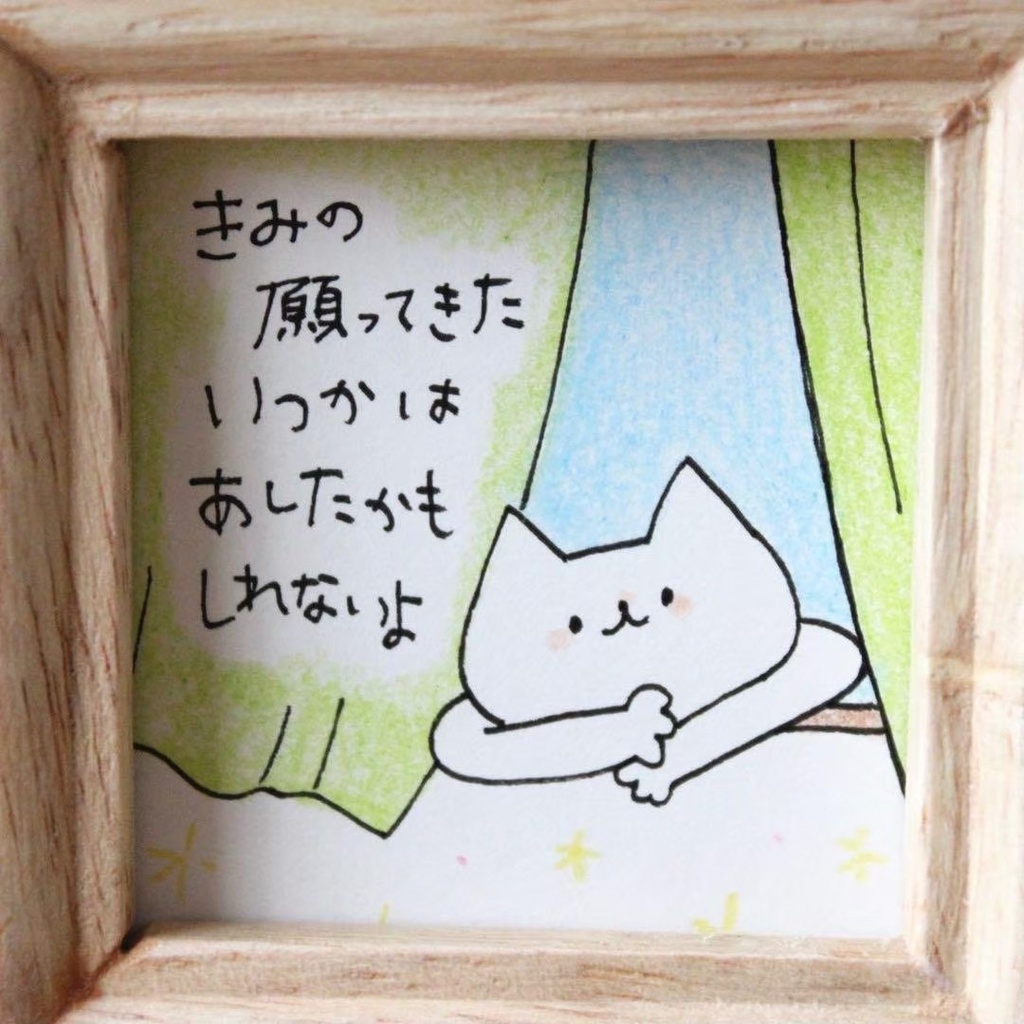 きみの
願ってきた
いつかは
あしたかも
しれないよ